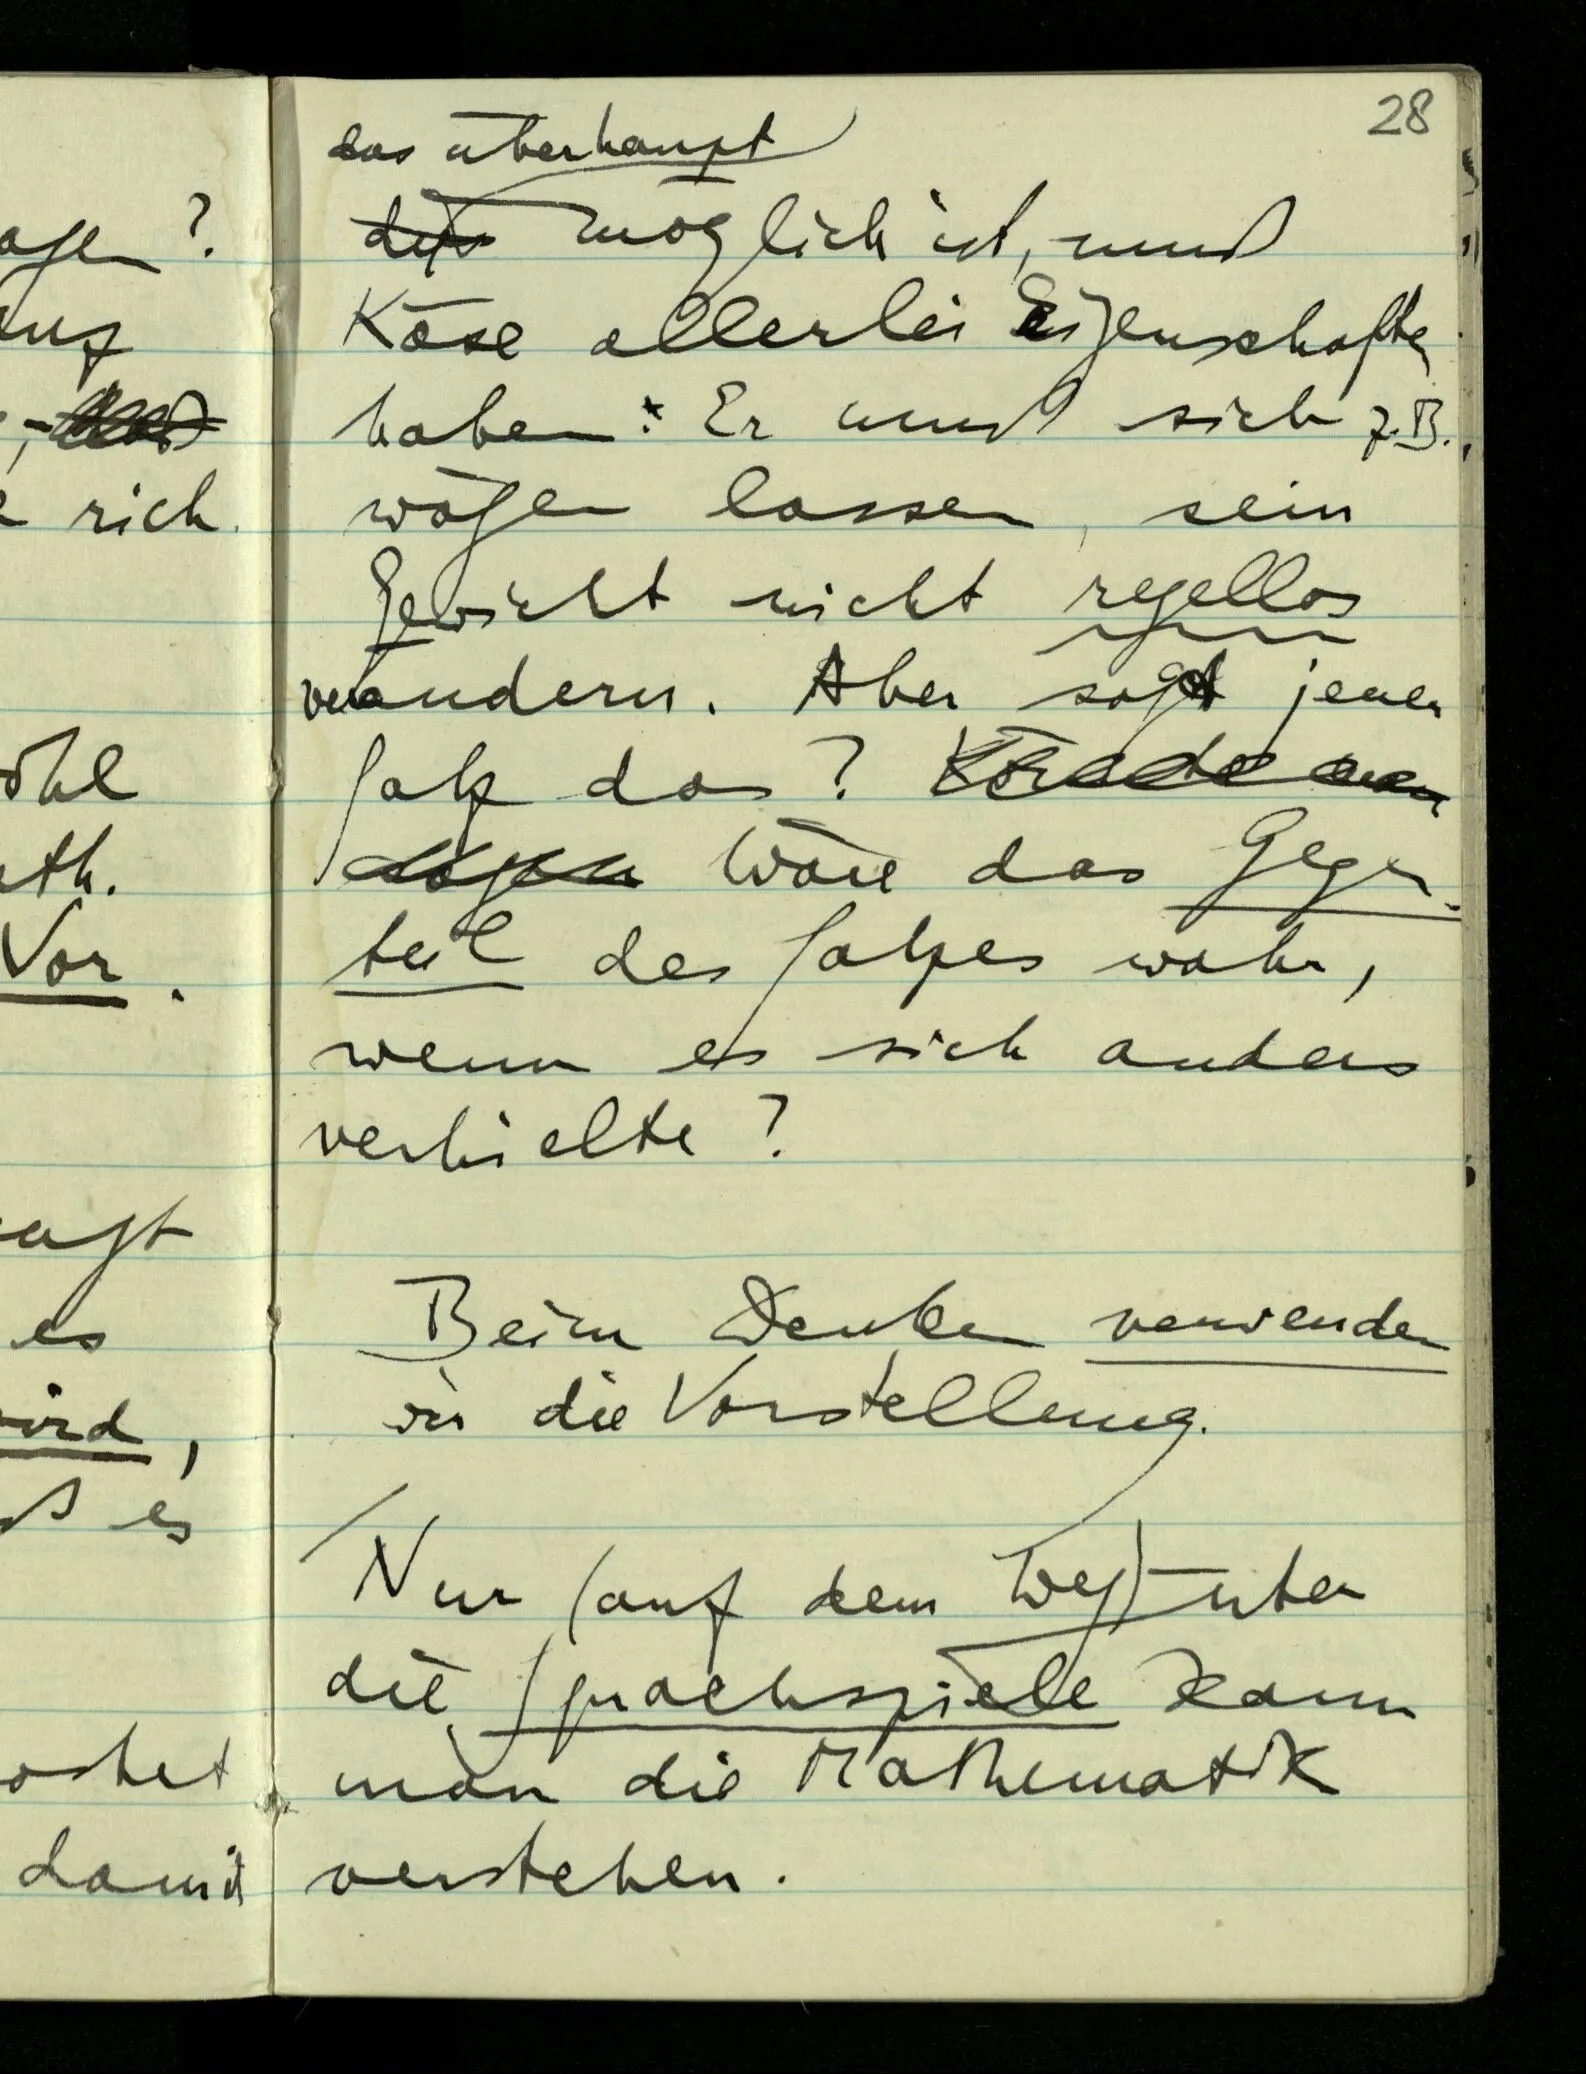 28
das überhaupt
dies möglich ist, muß
Käse allerlei Eigenschaften
haben: Er muß sich z.B.,
wägen lassen, sein
Gewicht nicht regellos
verändern. Aber sagt jener
Satz das? Würde man
sagen Wäre das Gegen-
teil des Satzes wahr,
wenn es sich anders
verhielte?
Beim Denken verwenden
wir die Vorstellung.
Nur (auf dem Weg) über
die Sprachspiele kann
man die Mathematik
verstehen.
?
rich
Vor.
es
wird,
es
damit